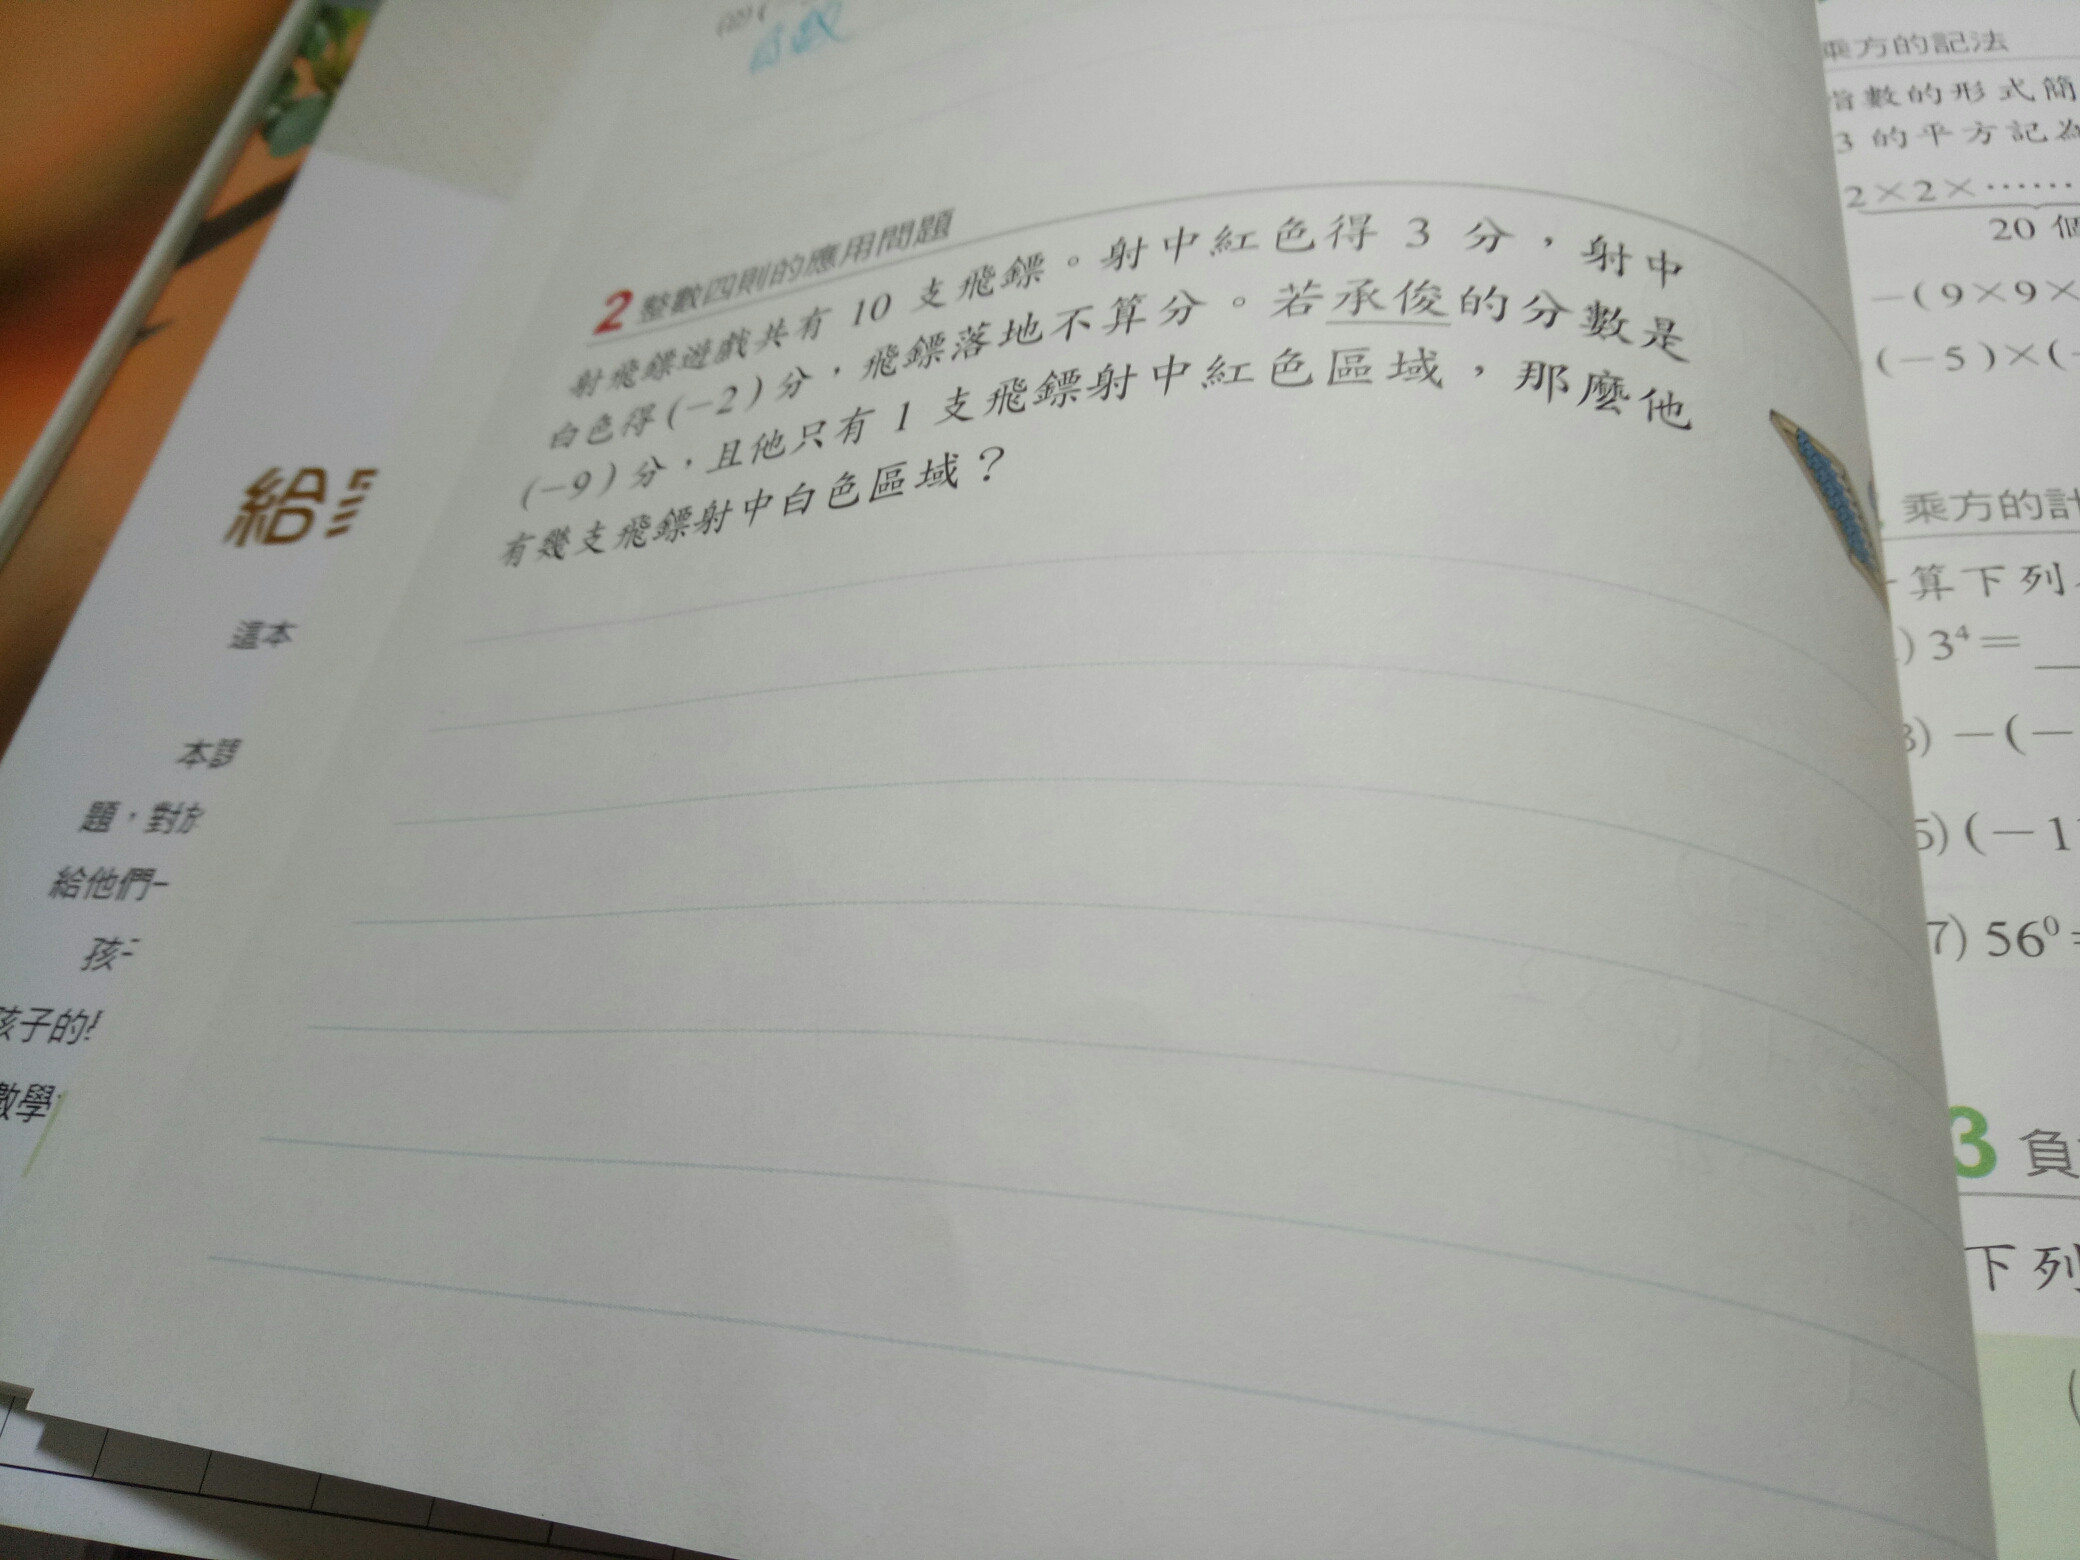 2 整數四則的應用問題
射飛鏢遊戲共有 10 支飛鏢。射中紅色得 3 分，射中
白色得(-2)分，飛鏢落地不算分。若承俊的分數是
(-9)分，且他只有 1 支飛鏢射中紅色區域，那麼他
有幾支飛鏢射中白色區域？
給
這本
本
題，對於
給他們一
孩子的
數學
乘方的記法
指數的形式簡
3 的平方記為
2×2×……
20 個
-(9×9×
(-5)×(-
乘方的計
算下列
) 3⁴=
3) -(-
5) (-1
7) 56⁰=
3 負
下列